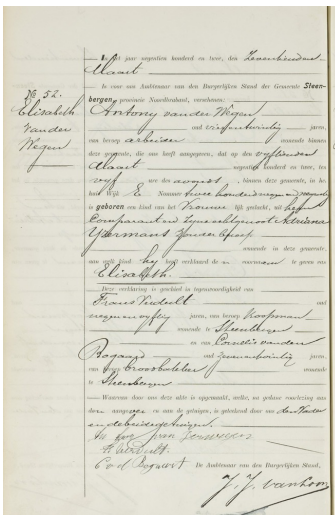 In het jaar negentien honderd en twee, den Zeventienden
Maart
is voor ons Ambtenaar van den Burgerlijken Stand der Gemeente Steen-
bergen, provincie Noordbrabant, verschenen:
No 52.
Elisabeth
van der
Wegen
Antony van der Wegen
oud vierentwintig jaren,
van beroep arbeider wonende binnen
deze gemeente, die ons heeft aangegeven, dat op den vijftienden
Maart negentien honderd en twee, ten
vijf ure des binnen deze gemeente, in het
huis Wijk E Nummer twee honderd
is geboren een kind van het Vrouwelijk geslacht, uit hem
Comparant en zijne echtgenoot Adriana
IJzermans zonder beroep
wonende in deze gemeente,
aan welk kind hij heeft verklaard de voornaam te geven van
Elisabeth.
Deze verklaring is geschied in tegenwoordigheid van
Frans Verdult oud
negenenvijftig jaren, van beroep Koopman
wonende te Steenbergen
en van Cornelis van den
Bogaard oud zevenentwintig jaren,
van beroep Broodbakker wonende
te Steenbergen
Waarvan door ons deze akte is opgemaakt, welke, na gedane voorlezing aan
den aangever en aan de getuigen, is geteekend door ons, den Vader
en de beide getuigen.
F. Verdult
C v d Bogaert
De Ambtenaar van den Burgerlijken Stand,
J. J. van Loon